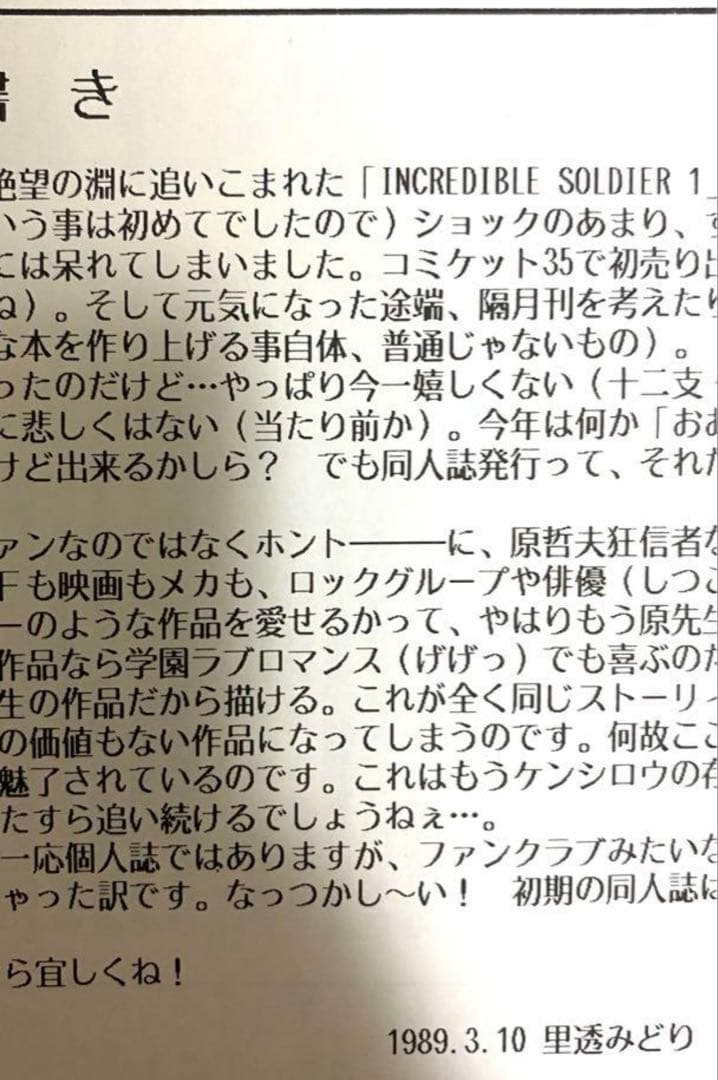 書き
絶望の淵に追いこまれた「INCREDIBLE SOLDIER 1」
いう事は初めてでしたので）ショックのあまり、
には呆れてしまいました。コミケット35で初売り出
ね）。そして元気になった途端、隔月刊を考えたり
な本を作り上げる事自体、普通じゃないもの）。
ったのだけど…やっぱり今一嬉しくない（十二支・
に悲しくはない（当たり前か）。今年は何か「おお
けど出来るかしら？　でも同人誌発行って、それた
ァンなのではなくホント―――に、原哲夫狂信者な
Fも映画もメカも、ロックグループや俳優（しつこ
ーのような作品を愛せるかって、やはりもう原先生
作品なら学園ラブロマンス（げげっ）でも喜ぶのた
生の作品だから描ける。これが全く同じストーリィ
の価値もない作品になってしまうのです。何故ここ
魅了されているのです。これはもうケンシロウの存
たすら追い続けるでしょうねぇ…。
一応個人誌ではありますが、ファンクラブみたいな
ゃった訳です。なっつかし～い！　初期の同人誌は
ら宜しくね！
1989.3.10 里透みどり